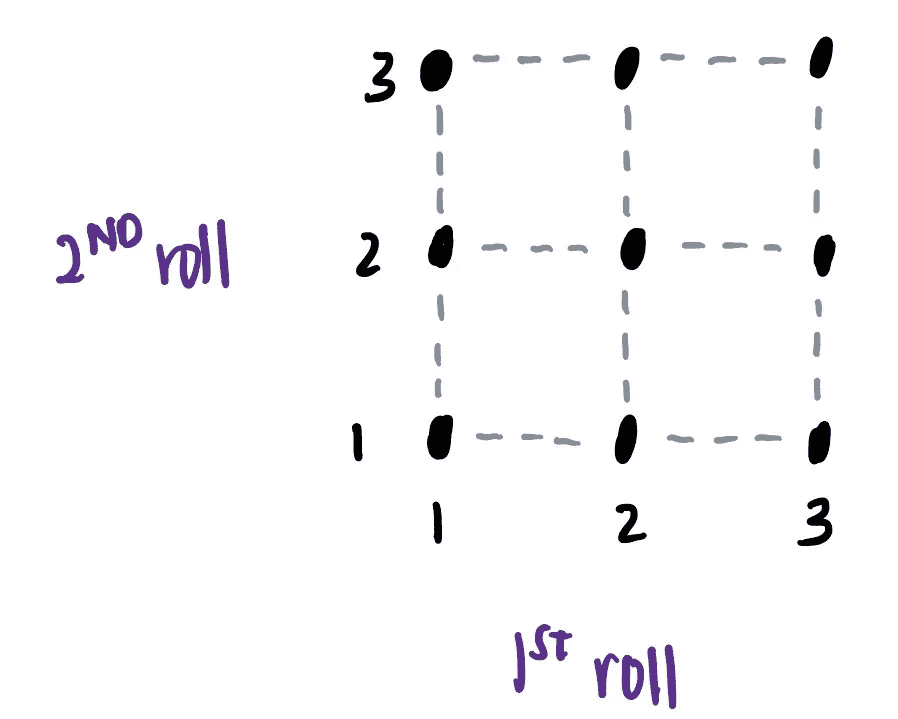 3
2ND roll
2
1
1 2 3
1ST roll